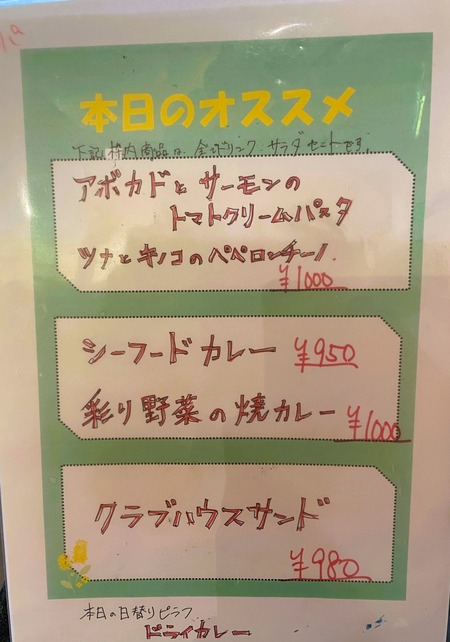 本日のオススメ
下記 枠内商品は 全てドリンク サラダセットです。
アボカドと サーモンの
トマトクリームパスタ
ツナとキノコのペペロンチーノ
¥1000
シーフードカレー ¥950
彩り野菜の焼カレー ¥1000
クラブハウスサンド
¥980
本日の日替りピラフ
ドライカレー